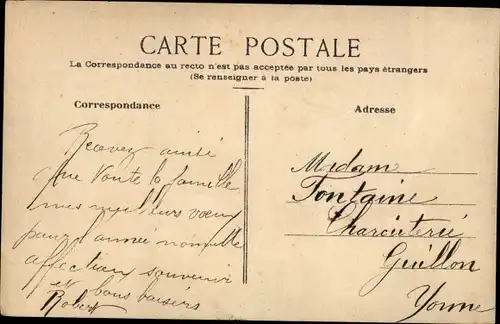 CARTE POSTALE
La Correspondance au recto n'est pas acceptée par tous les pays étrangers
(Se renseigner à la poste)
Correspondance
Adresse
Recevez ainsi
que toute la famille
mes meilleurs vœux
pour l'année nouvelle
affectieux souvenir
et bons baisers
Robert
Madam
Fontaine
Charcuterie
Guillon
Yonne